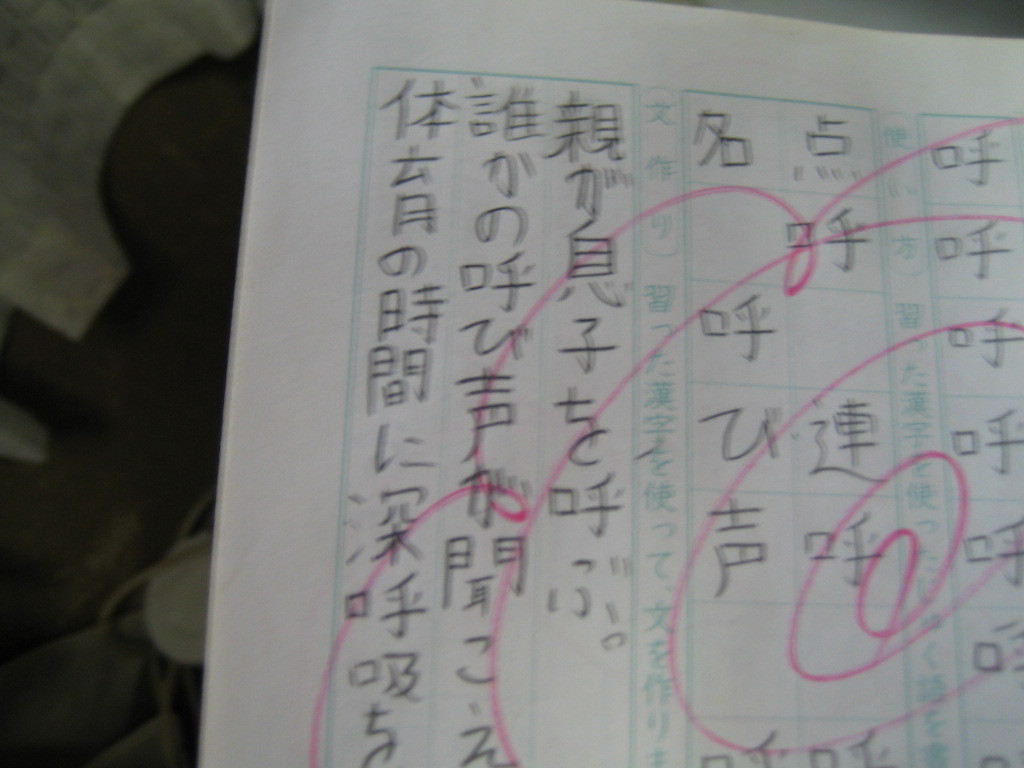 呼呼呼呼呼呼
使い方 習った漢字を使ったじゅく語を書
点呼 連呼 呼
名呼び声 呼
文作り 習った漢字を使って、文を作りま
親が息子を呼ぶ。
誰かの呼び声が聞こえ
体育の時間に深呼吸を